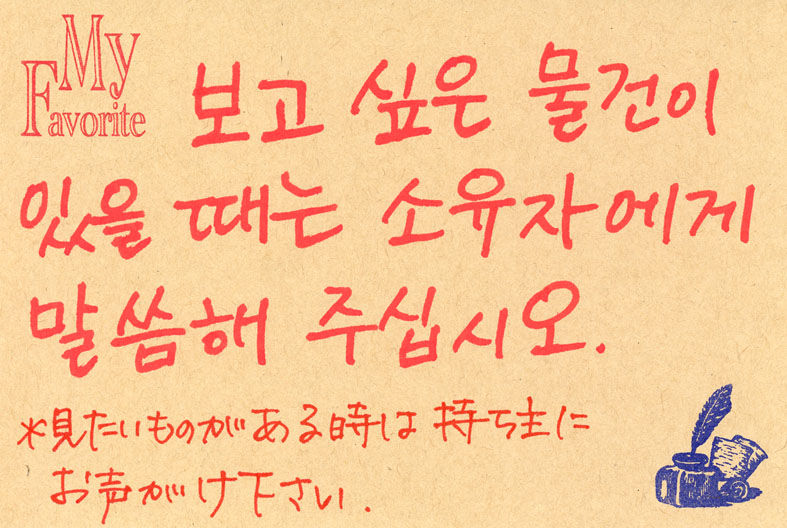 My
Favorite
보고 싶은 물건이
있을 때는 소유자에게
말씀해 주십시오.
*見たいものがある時は 持ち主に
お声がけ下さい.